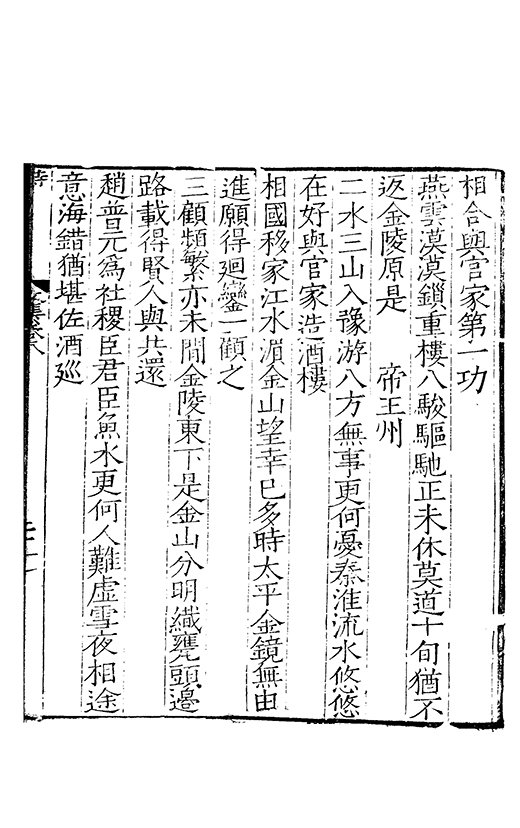 相合與官家第一功
燕雲漠漠鎖重樓八駿驅馳正未休莫道十旬猶不
返金陵原是　帝王州
二水三山入豫游八方無事更何憂秦淮流水悠悠
在好與官家造酒樓
相國移家江水湄金山望幸巳多時太平金鏡無由
進願得迴鑾一顧之
三顧頻繁亦未閒金陵東下是金山分明鐵甕頭邊
路載得賢人與共還
趙普元爲社稷臣君臣魚水更何人難虛雪夜相途
意海錯猶堪佐酒廵